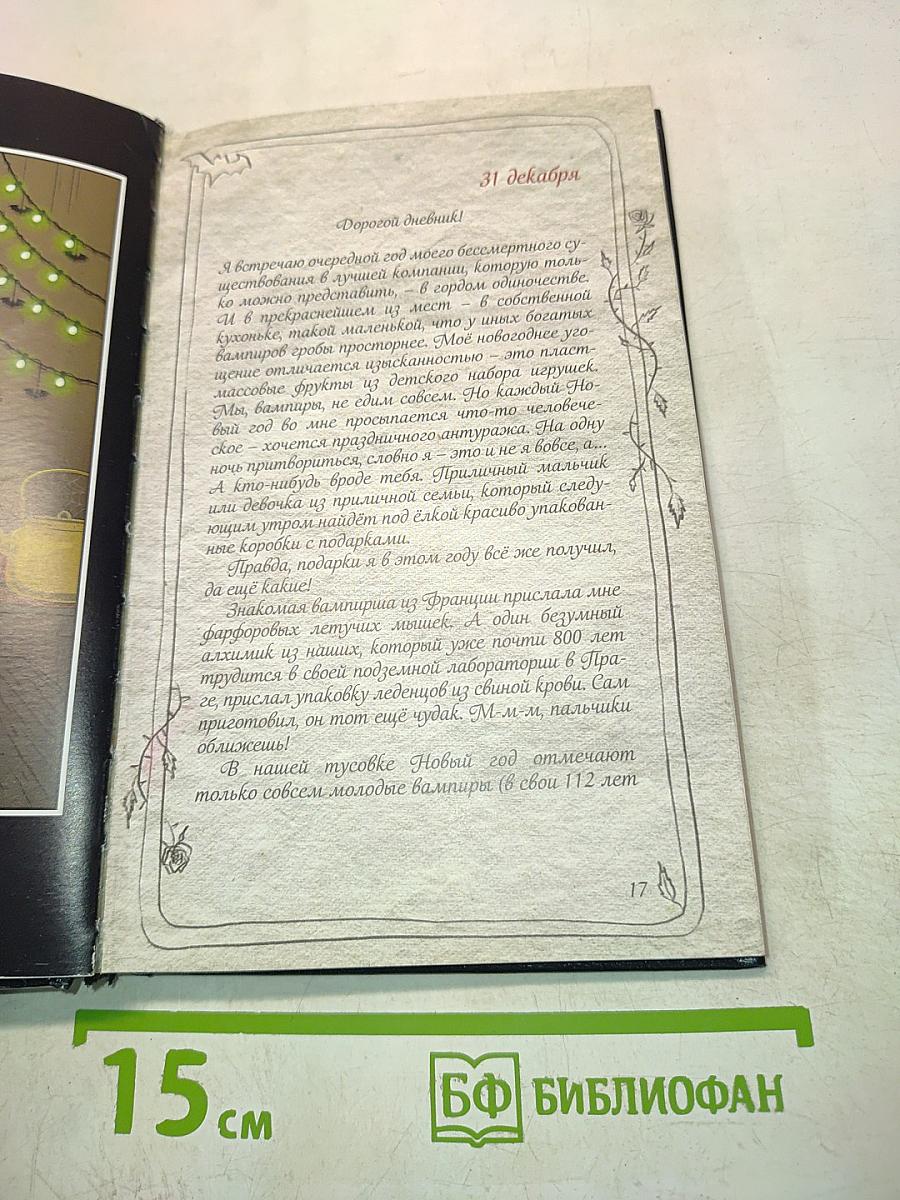 31 декабря
Дорогой дневник!
Я встречаю очередной год моего бессмертного су-
ществования в лучшей компании, которую толь-
ко можно представить, – в гордом одиночестве.
И в прекраснейшем из мест – в собственной
кухоньке, такой маленькой, что у иных богатых
вампиров гробы просторнее. Моё новогоднее уго-
щение отличается изысканностью – это пласт-
массовые фрукты из детского набора игрушек.
Мы, вампиры, не едим совсем. Но каждый Но-
вый год во мне просыпается что-то человече-
ское – хочется праздничного антуража. На одну
ночь притвориться, словно я – это и не я вовсе, а...
А кто-нибудь вроде тебя. Приличный мальчик
или девочка из приличной семьи, который следу-
ющим утром найдёт под ёлкой красиво упакован-
ные коробки с подарками.
Правда, подарки я в этом году всё же получил,
да ещё какие!
Знакомая вампирша из Франции прислала мне
фарфоровых летучих мышек. А один безумный
алхимик из наших, который уже почти 800 лет
трудится в своей подземной лаборатории в Пра-
ге, прислал упаковку леденцов из свиной крови. Сам
приготовил, он тот ещё чудак. М-м-м, пальчики
оближешь!
В нашей тусовке Новый год отмечают
только совсем молодые вампиры (в свои 112 лет
17
15 см
БФ БИБЛИОФАН